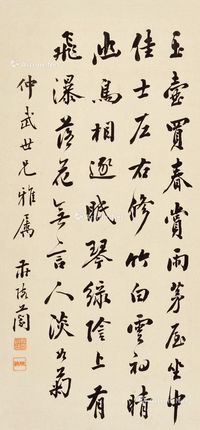 玉壶買春賞雨茅屋坐中
佳士左右修竹白雲初晴
幽鳥相逐眠琴綠陰上有
飛瀑落花無言人淡如菊
仲武世兄雅屬
莊蘊寬